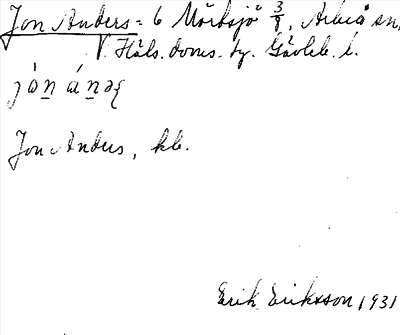 Jon Anders = 6 Mörtsjö 3/8, Arbrå sn,
V. Häls. doms. hg. Gävleb. l.
Jon Anders, kb.
Erik Eriksson 1931